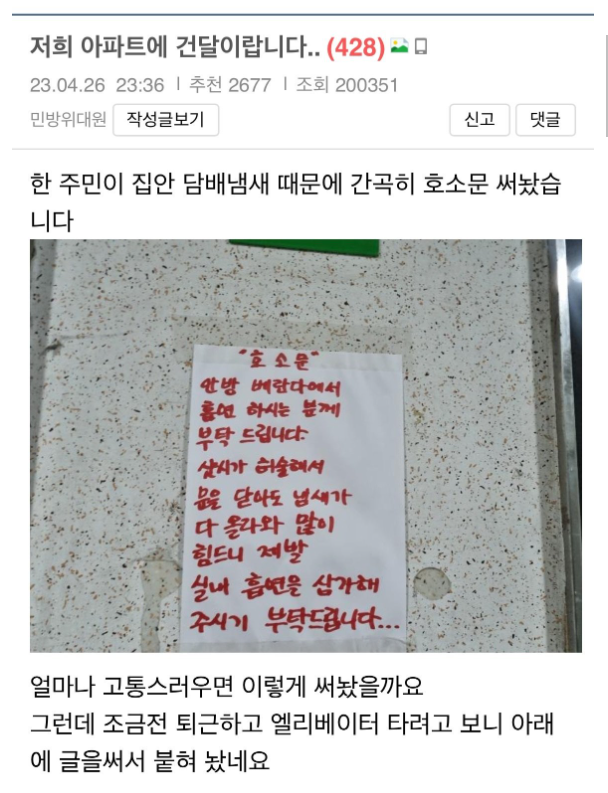 저희 아파트에 건달이랍니다.. (428)
23.04.26 23:36 | 추천 2677 | 조회 200351
민방위대원 작성글보기 신고 댓글
한 주민이 집안 담배냄새 때문에 간곡히 호소문 써놨습
니다
"호소문"
안방 베란다에서
흡연 하시는 분께
부탁 드립니다.
샷시가 허술해서
문을 닫아도 냄새가
다 올라와 많이
힘드니 제발
실내 흡연을 삼가해
주시기 부탁드립니다...
얼마나 고통스러우면 이렇게 써놨을까요
그런데 조금전 퇴근하고 엘리베이터 타려고 보니 아래
에 글을써서 붙혀 놨네요